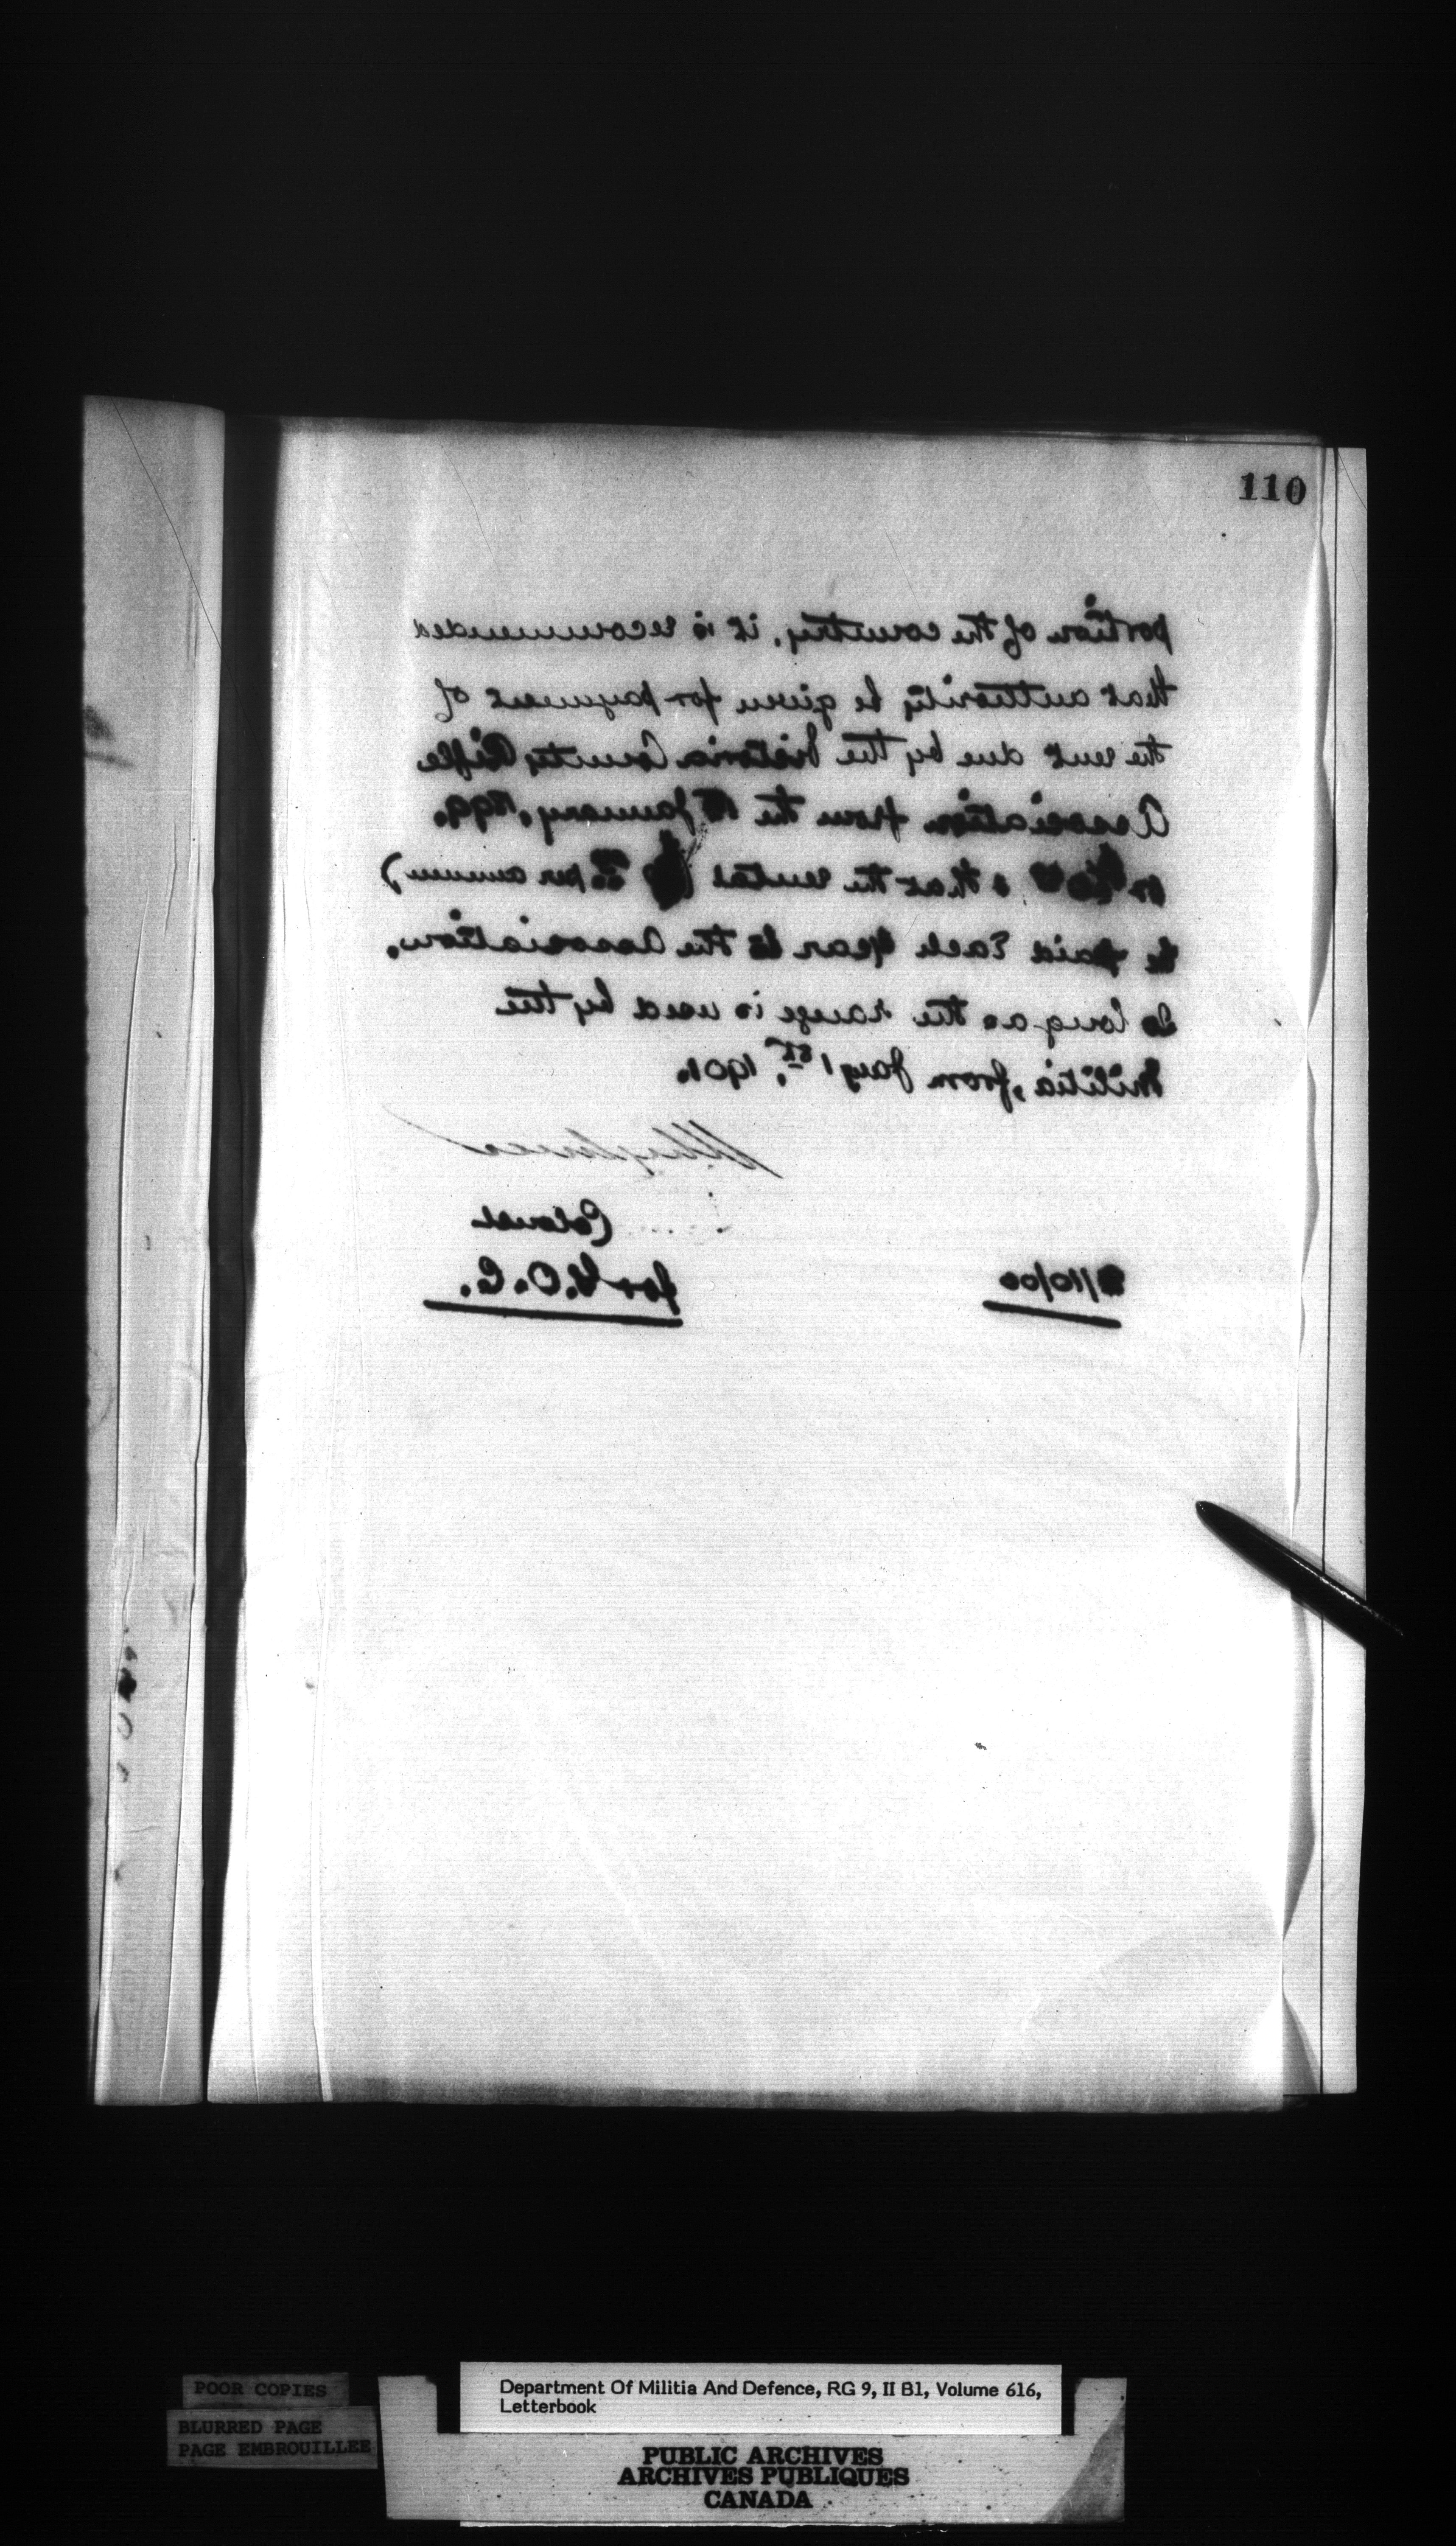 110
portion of the country, it is recommended
that authority be given for payment of
the rent due by the Victoria County Rifle
Association from the 1st January, 1899.
or & that the rental per annum)
be paid Each year to the Association.
So long as the range is used by the
Militia, from Jany 1st, 1901.
Colonel
for G.O.C.
/10/00
POOR COPIES
BLURRED PAGE
PAGE EMBROUILLEE
Department Of Militia And Defence, RG 9, II B1, Volume 616,
Letterbook
PUBLIC ARCHIVES
ARCHIVES PUBLIQUES
CANADA